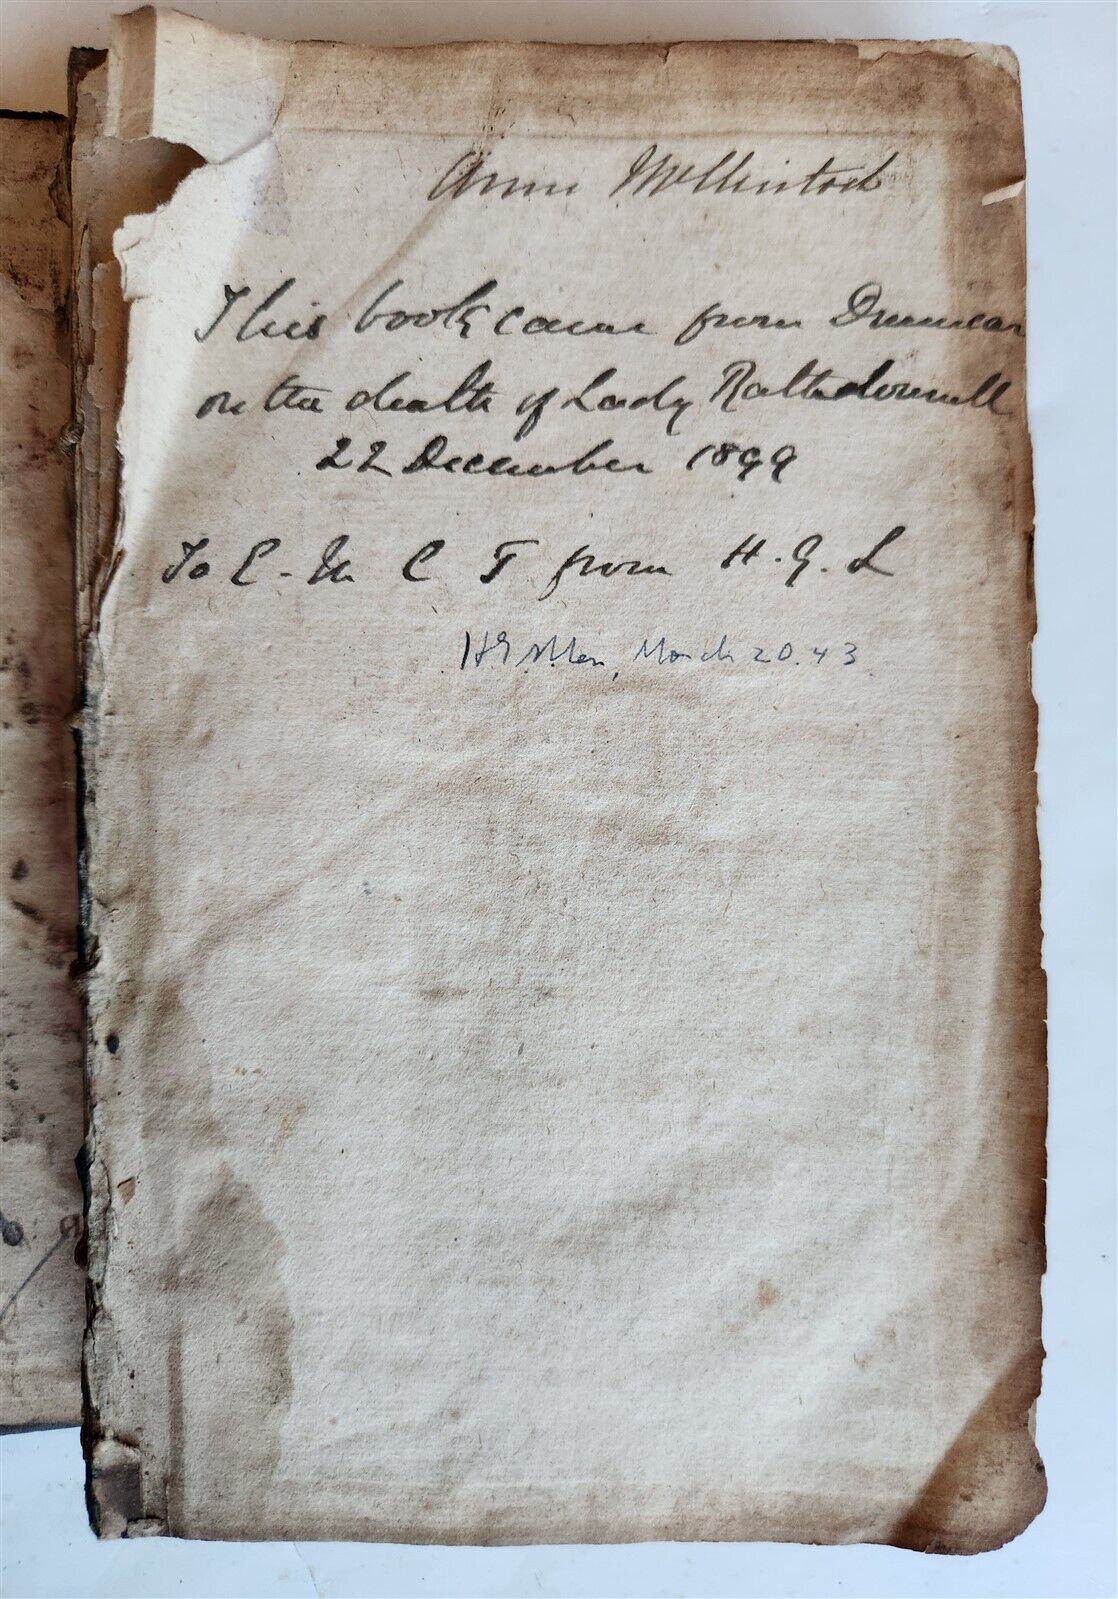 Anne McClintock
This book came from Drumcar
on the death of Lady Rathdonnell
22 December 1899
To E. M C T from H. G. L
March 20. 43